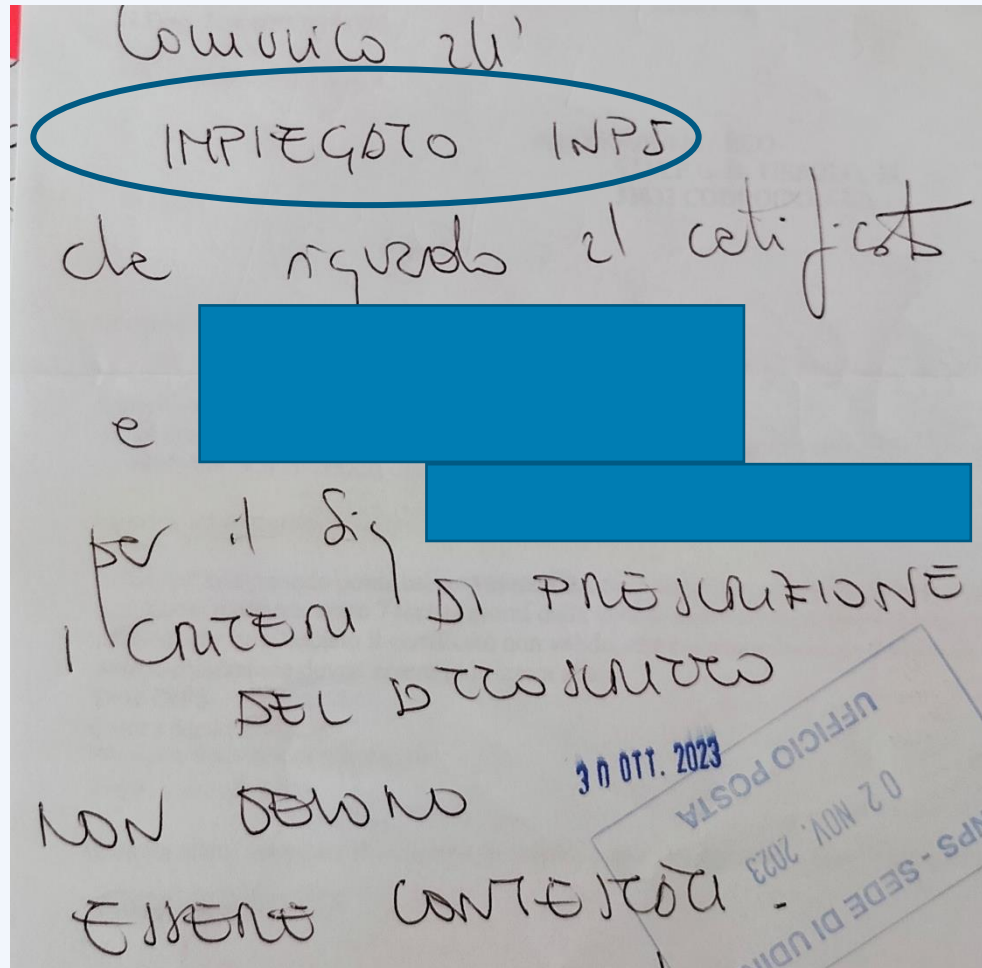 Comunico all'
IMPIEGATO INPS
che riguardo al certificato
e
per il Sig
I CRITERI DI PRESCRIZIONE
DEL SOTTOSCRITTO
30 OTT. 2023
NON DEVONO
ESSERE CONTESTATI.
UFFICIO POSTA
02 NOV. 2023
NPS - SEDE DI UDIN